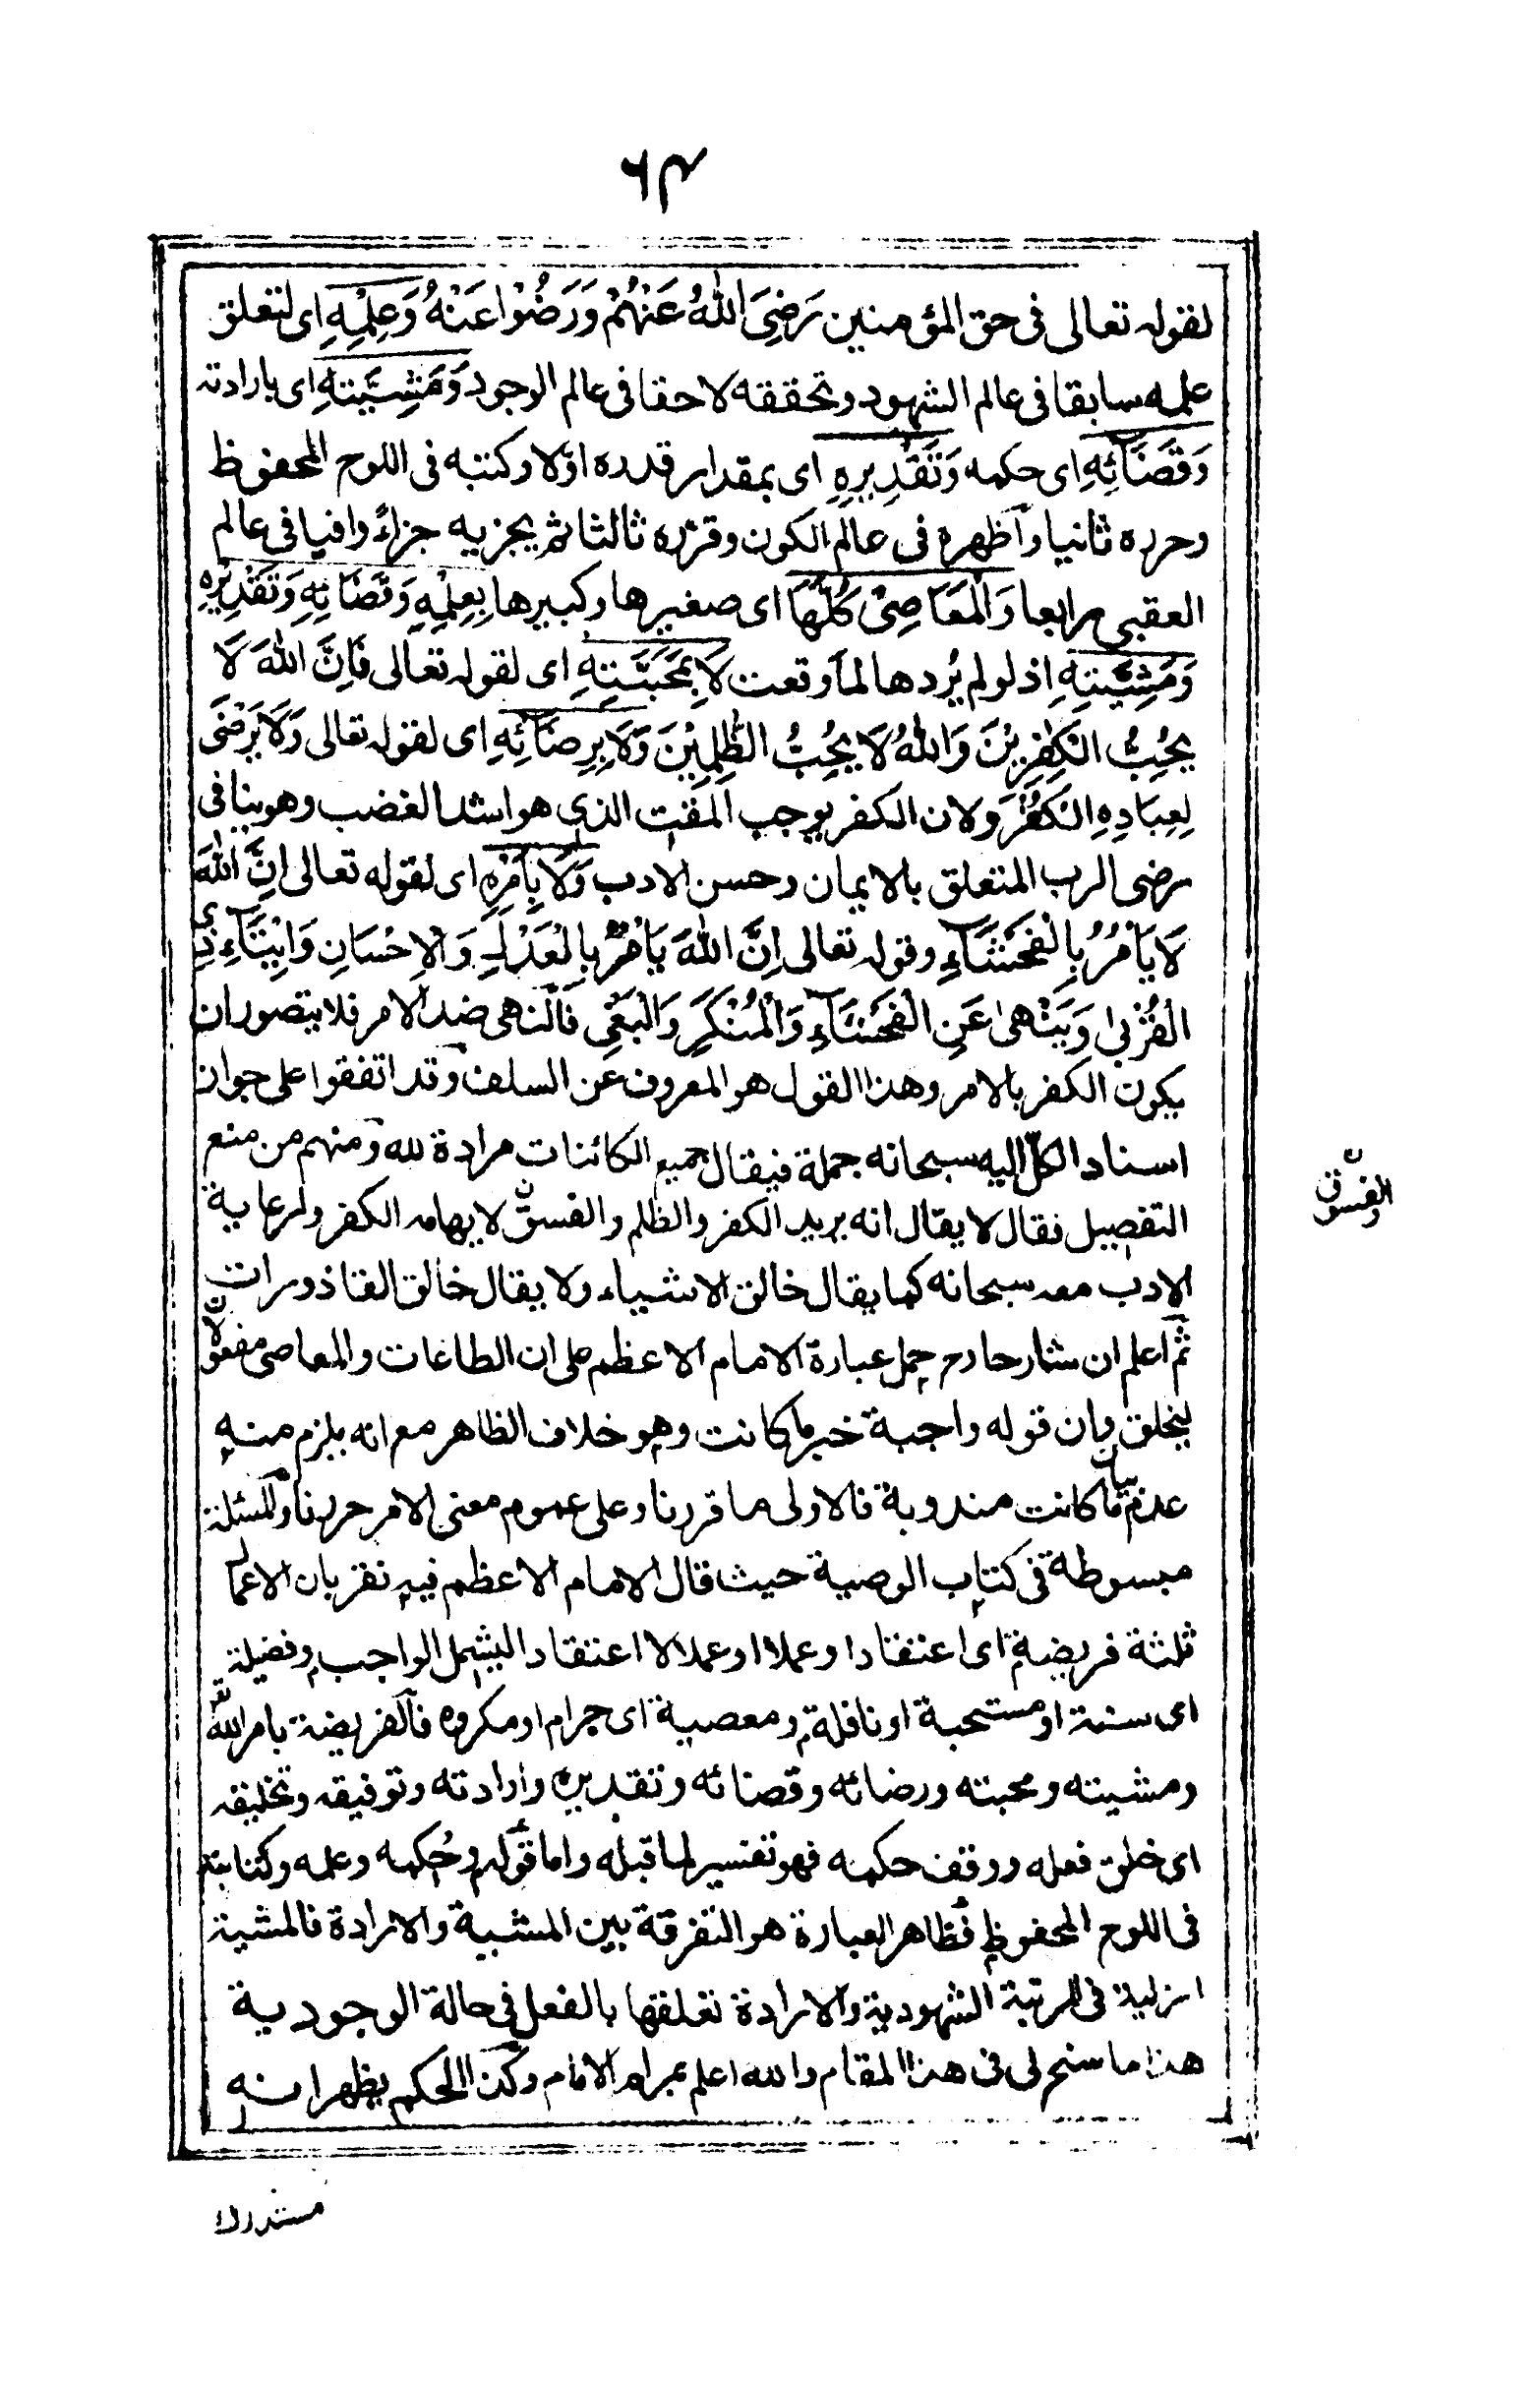 ٦٣
لقوله تعالى فى حق المؤمنين رَضِىَ اللّٰهُ عَنْهُمْ وَرَضُوْا عَنْهُ وَعِلْمِهِ اى لتعلق
علمه سابقا فى عالم الشهود وتحققه لاحقا فى عالم الوجود وَمَشِيَّتِهِ اى بارادته
وَقَضَائِهِ اى حكمه وَتَقْدِيرِهِ اى بمقدار قدره اوّلا وكتبه فى اللوح المحفوظ
وحرره ثانيا واظهره فى عالم الكون وقرّره ثالثا ثم يجزيه جزاءً وافيا فى عالم
العقبى رابعا وَالْمَعَاصِىْ كُلُّهَا اى صغيرها وكبيرها بِعِلْمِهِ وَقَضَائِهِ وَتَقْدِيْرِهِ
وَمَشِيَّتِهِ اذ لو لم يُردها لما وقعت لَا بِمَحَبَّتِهِ اى لقوله تعالى فَاِنَّ اللّٰهَ لَا
يُحِبُّ الْكٰفِرِيْنَ وَاللّٰهُ لَا يُحِبُّ الظّٰلِمِيْنَ وَلَا بِرِضَائِهِ اى لقوله تعالى وَلَا يَرْضٰى
لِعِبَادِهِ الْكُفْرَ ولان الكفر يوجب المقت الذى هو اشد الغضب وهو ينافى
رضى الرب المتعلق بالايمان وحسن الادب وَلَا بِاَمْرِهِ اى لقوله تعالى اِنَّ اللّٰهَ
لَا يَاْمُرُ بِالْفَحْشَآءِ وقوله تعالى اِنَّ اللّٰهَ يَاْمُرُ بِالْعَدْلِ وَالْاِحْسَانِ وَاِيْتَآءِ ذِى
الْقُرْبٰى وَيَنْهٰى عَنِ الْفَحْشَآءِ وَالْمُنْكَرِ وَالْبَغْىِ فالنهى ضد الامر فلا يتصور ان
يكون الكفر بالامر وهذا القول هو المعروف عن السلف وقد اتفقوا على جواز
اسناد الكلّ اليه سبحانه جملة فيقال جميع الكائنات مرادة لله ومنهم من منع
التفصيل فقال لا يقال انه يريد الكفر والظلم والفسق لايهامه الكفر ولرعاية
والفسوق ن
الادب معه سبحانه كما يقال خالق الاشياء ولا يقال خالق القاذورات
ثم اعلم ان شارحا رح حمل عبارة الامام الاعظم على ان الطاعات والمعاصى مفعولان
لخلق وان قوله واجبة خبر ما كانت وهو خلاف الظاهر مع انه يلزم منه
عدم بيان ما كانت مندوبة فالاولى ما قررنا وعلى عموم معنى الامر حررنا والمسئلة
مبسوطة فى كتاب الوصية حيث قال الامام الاعظم فيه نقر بان الاعمال
ثلثة فريضة اى اعتقادا وعملا او عملا لا اعتقادا ليشمل الواجب وفضيلة
اى سنة او مستحبة او نافلة ومعصية اى حرام او مكروه فالفريضة بامر اللّٰه تع
ومشيته ومحبته ورضائه وقضائه وتقديره وارادته وتوفيقه وتخليقه
اى خلق فعله ووقف حكمه فهو تفسير لما قبله واما قوله وحُكمه وعلمه وكتابته
فى اللوح المحفوظ فظاهر العبارة هو التفرقة بين المشية والارادة فالمشية
ازلية فى المرتبة الشهودية والارادة تعلقها بالفعل فى حالة الوجودية
هذا ما سنح لى فى هذا المقام والله اعلم بمرام الامام وكذا الحكم يظهر انه
مستدرك